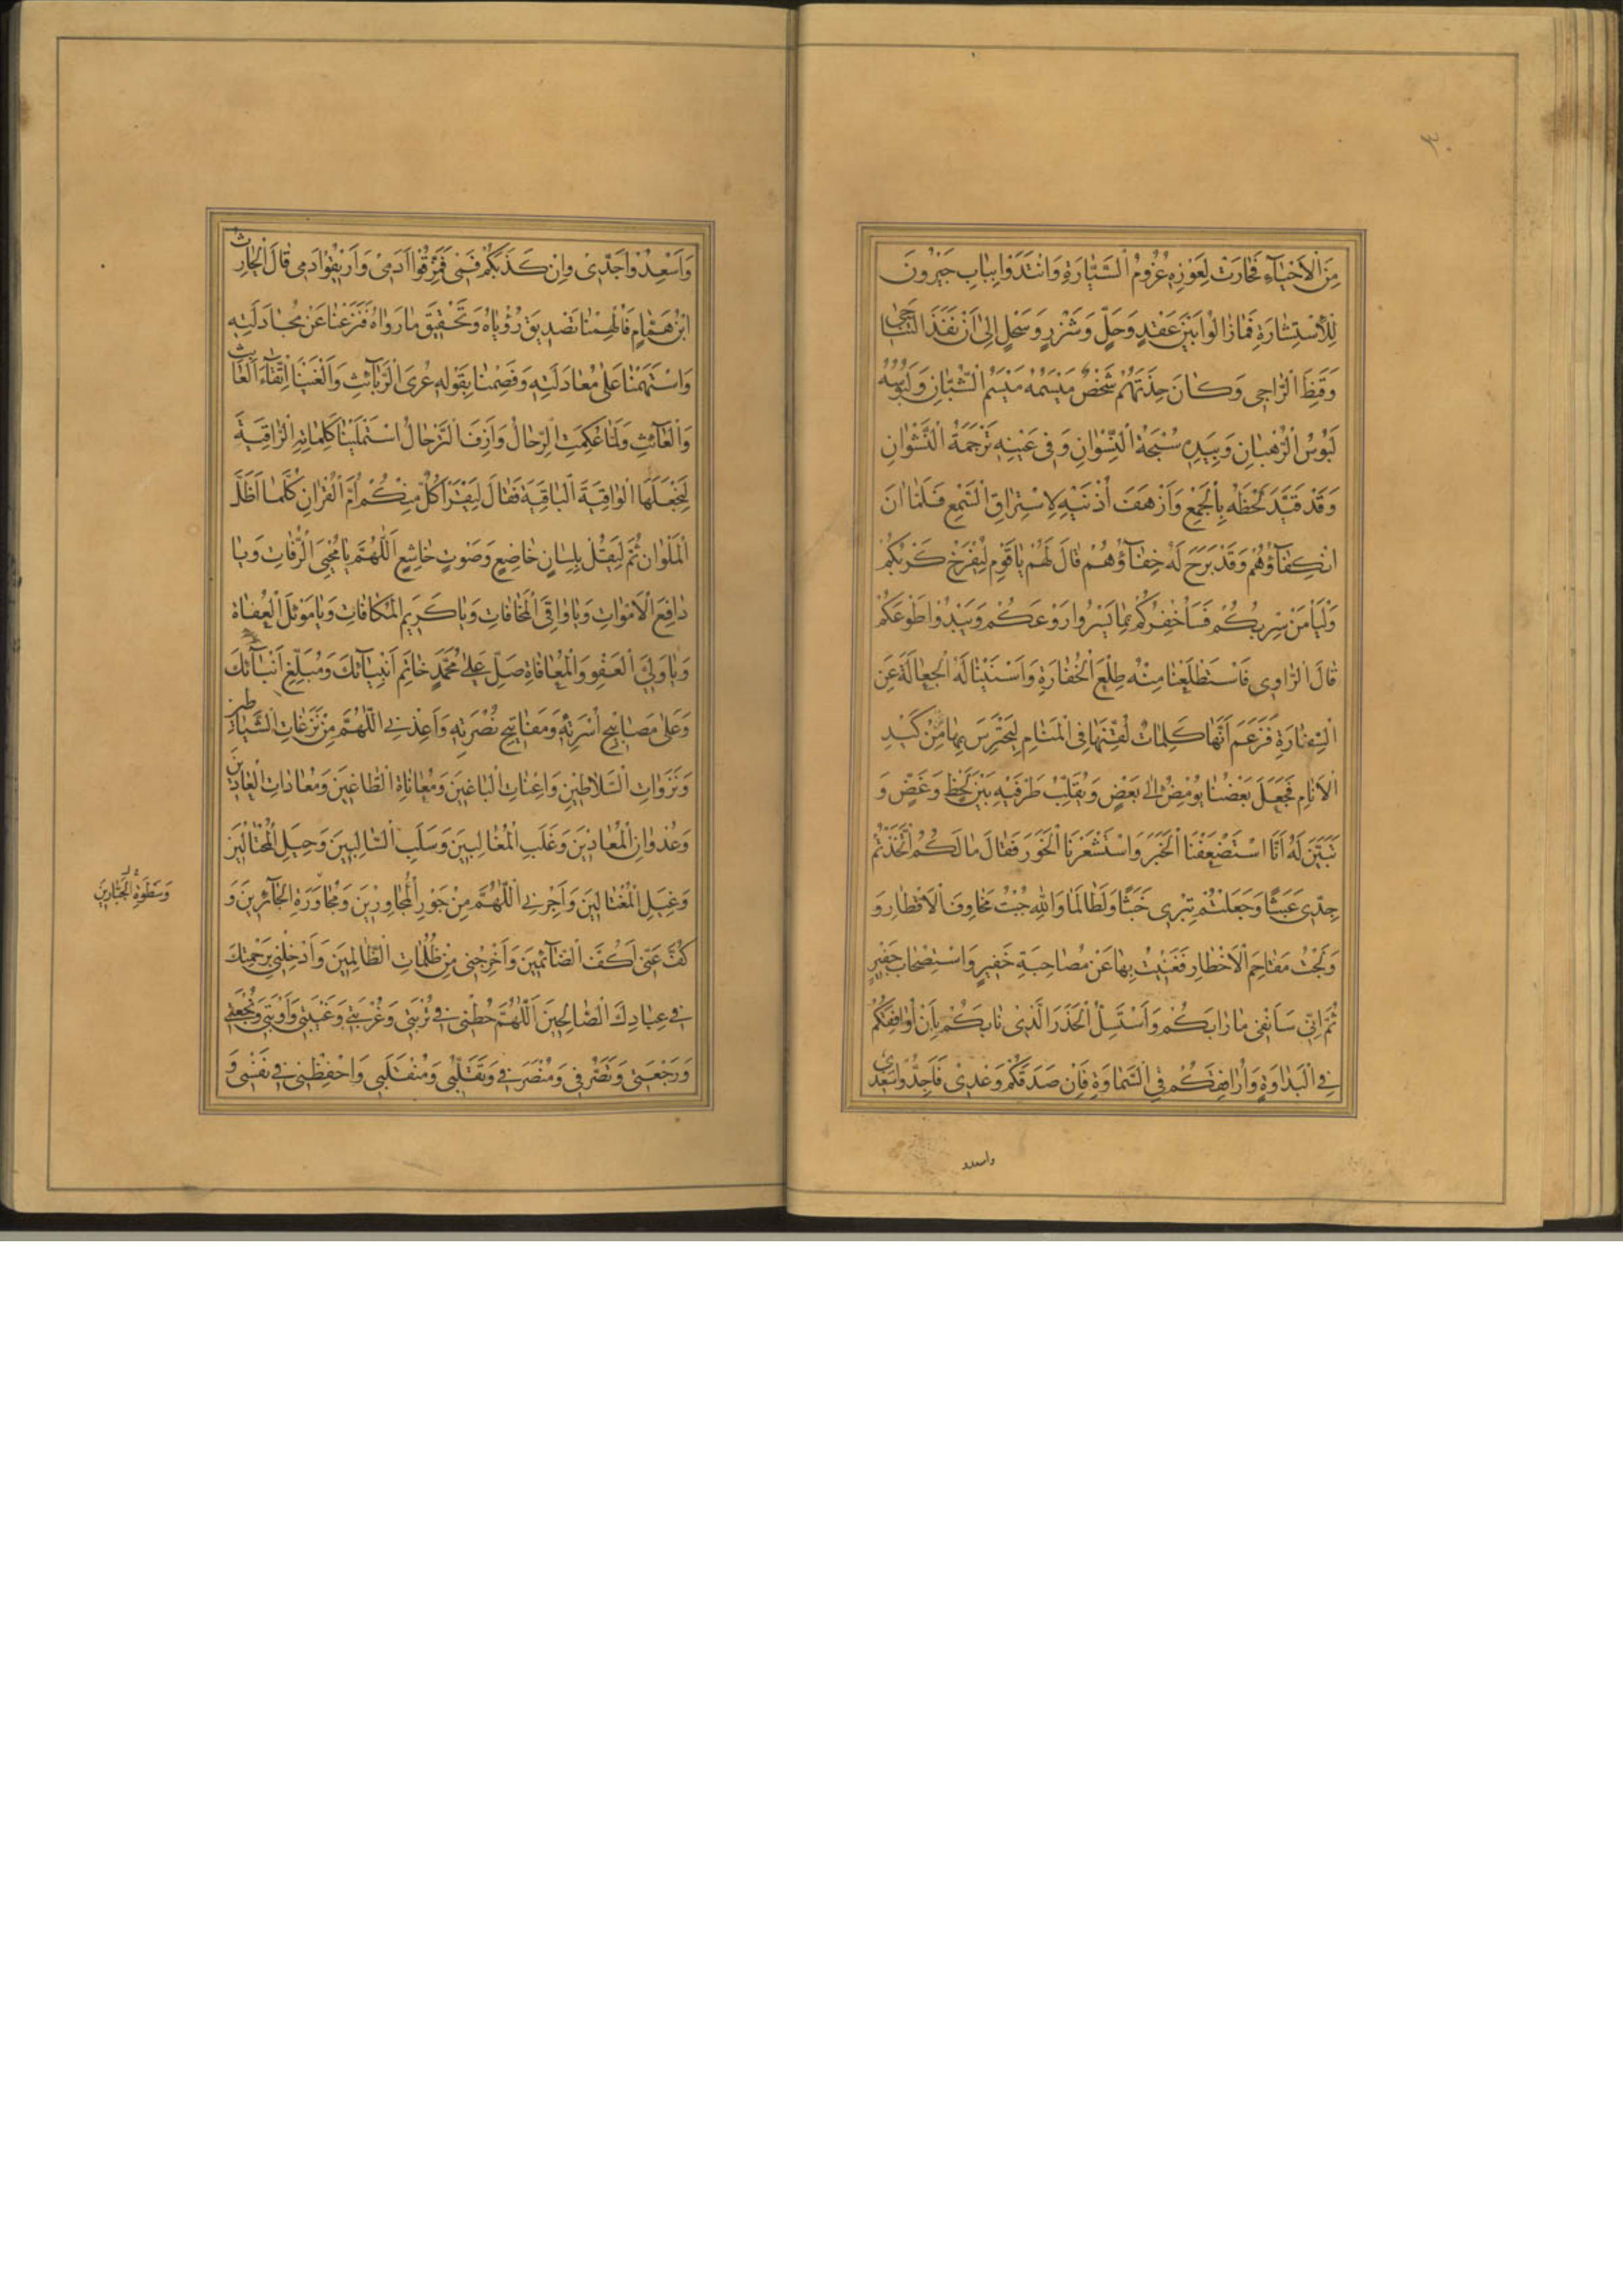 ٣٠
مِنَ الْاَحْيَآءِ فَحَارَتْ لِعَوْزِهِ عُزُومُ السَّيَّارَةِ وَانْتَدَوْا بِبَابِ جَيْرُونَ
لِلْاِسْتِشَارَةِ فَمَا زَالُوا بَيْنَ عَقْدٍ وَحَلٍّ وَشَزْرٍ وَسَحْلٍ اِلٰى اَنْ نَفَذَ التَّنَاجِى
وَقَنِطَ الرَّاجِى وَكَانَ حِذَتَهُمْ شَخْصٌ مَيْسَمُهُ مَيْسَمُ الشُّبَّانِ وَلَبُوسُهُ
لَبُوسُ الرُّهْبَانِ وَبِيَدِهِ سُبْحَةُ النِّسْوَانِ وَفِى عَيْنِهِ تَرْجَمَةُ النَّشْوَانِ
وَقَدْ قَيَّدَ لَحْظَهُ بِالْجَمْعِ وَاَرْهَفَ اُذْنَيْهِ لِاسْتِرَاقِ السَّمْعِ فَلَمَّا اٰنَ
انْكِفَاؤُهُمْ وَقَدْ بَرَحَ لَهُ خِفَاؤُهُمْ قَالَ لَهُمْ يَا قَوْمِ لِيُفْرِخْ كَرْبُكُمْ
وَلْيَأْمَنْ سِرْبُكُمْ فَسَأُخْفِرُكُمْ بِمَا يَسْرُوا رَوْعَكُمْ وَيَبْدُوا طَوْعَكُمْ
قَالَ الرَّاوِى فَاسْتَطْلَعْنَا مِنْهُ طِلْعَ الْخُفَارَةِ وَاَسْنَيْنَا لَهُ الْجِعَالَةَ عَنِ
السِّفَارَةِ فَزَعَمَ اَنَّهَا كَلِمَاتٌ لُقِّنَهَا فِى الْمَنَامِ لِيَحْتَرِسَ بِهَا مِنْ كَيْدِ
الْاَنَامِ فَجَعَلَ بَعْضُنَا يُومِضُ اِلٰى بَعْضٍ وَيُقَلِّبُ طَرْفَيْهِ بَيْنَ لَحْظٍ وَغَضٍّ وَ
تَبَيَّنَ لَهُ اَنَّا اسْتَضْعَفْنَا الْخَبَرَ وَاسْتَشْعَرْنَا الْخَوَرَ فَقَالَ مَا لَكُمُ اتَّخَذْتُمْ
جِدِّى عَبَثًا وَجَعَلْتُمْ تِبْرِى خَبَثًا وَلَطَالَمَا وَاللهِ جُبْتُ مَخَاوِفَ الْاَقْطَارِ وَ
وَلَجْتُ مَقَاحِمَ الْاَخْطَارِ فَغَنِيْتُ بِهَا عَنْ مُصَاحَبَةِ خَفِيرٍ وَاسْتِصْحَابِ جَفِيرٍ
ثُمَّ اِنِّى سَاَنْفِى مَا رَابَكُمْ وَاَسْتَسِلُّ الْحَذَرَ الَّذِى نَابَكُمْ بِاَنْ اُوَافِقَكُمْ
فِى الْبَدَاوَةِ وَاُرَافِقَكُمْ فِى السَّمَاوَةِ فَاِنْ صَدَقَكُمْ وَعْدِى فَاَجِدُّوا سَعْدِى
واسعدو
وَاَسْعِدُوْا جَدِّى وَاِنْ كَذَبَكُمْ فَمِى فَمَزِّقُوا اَدَمِى وَاَرِيْقُوْا دَمِى قَالَ الْحَارِثُ
ابْنُ هَمَّامٍ فَاُلْهِمْنَا تَصْدِيقَ رُؤْيَاهُ وَتَحْقِيقَ مَا رَوَاهُ فَنَزَعْنَا عَنْ مُجَادَلَتِهِ
وَاسْتَهَمْنَا عَلٰى مُعَادَلَتِهِ وَفَصَمْنَا بِقَوْلِهِ عُرَى الرَّبَائِثِ وَاَلْغَيْنَا اتِّقَاءَ الْعَابِثِ
وَالْعَائِثِ وَلَمَّا عُكِمَتِ الرِّحَالُ وَاَزِفَ التَّرْحَالُ اسْتَمْلَيْنَا كَلِمَاتِهِ الرَّاقِيَةَ
لِنَجْعَلَهَا الْوَاقِيَةَ الْبَاقِيَةَ فَقَالَ لِيَقْرَأْ كُلٌّ مِنْكُمْ اُمَّ الْقُرْاٰنِ كُلَّمَا اَظَلَّ
الْمَلَوَانِ ثُمَّ لِيَقُلْ بِلِسَانٍ خَاضِعٍ وَصَوْتٍ خَاشِعٍ اَللّٰهُمَّ يَا مُحْيِىَ الرُّفَاتِ وَيَا
دَافِعَ الْاٰفَاتِ وَيَا وَاقِىَ الْمَخَافَاتِ وَيَا كَرِيمَ الْمُكَافَاتِ وَيَا مَوْئِلَ الْعُفَاةِ
وَيَا وَلِىَّ الْعَفْوِ وَالْمُعَافَاةِ صَلِّ عَلٰى مُحَمَّدٍ خَاتِمِ اَنْبِيَائِكَ وَمُبَلِّغِ اَنْبَائِكَ
وَعَلٰى مَصَابِيحِ اُسْرَتِهِ وَمَفَاتِيحِ نُصْرَتِهِ وَاَعِذْنِى اللّٰهُمَّ مِنْ نَزَغَاتِ الشَّيَاطِينِ
وَنَزَوَاتِ السَّلَاطِينِ وَاِعْنَاتِ الْبَاغِينَ وَمُعَانَاةِ الطَّاغِينَ وَمُعَادَاتِ الْعَادِينَ
وَعُدْوَانِ الْمُعَادِينَ وَغَلَبِ الْمُغَالِبِينَ وَسَلَبِ السَّالِبِينَ وَحِيَلِ الْمُحْتَالِينَ
وَغِيَلِ الْمُغْتَالِينَ وَاَجِرْنِى اللّٰهُمَّ مِنْ جَوْرِ الْمُجَاوِرِينَ وَمُجَاوَرَةِ الْجَائِرِينَ وَ
وَسَطْوَةِ الْجَبَّارِينَ
كُفَّ عَنِّى اَكُفَّ الضَّائِمِينَ وَاَخْرِجْنِى مِنْ ظُلُمَاتِ الظَّالِمِينَ وَاَدْخِلْنِى بِرَحْمَتِكَ
فِى عِبَادِكَ الصَّالِحِينَ اَللّٰهُمَّ حُطْنِى فِى تُرْبَتِى وَغُرْبَتِى وَغَيْبَتِى وَاَوْبَتِى وَنُجْعَتِى
وَرَجْعَتِى وَتَصَرُّفِى وَمُنْصَرَفِى وَتَقَلُّبِى وَمُنْقَلَبِى وَاحْفَظْنِى فِى نَفْسِى وَ